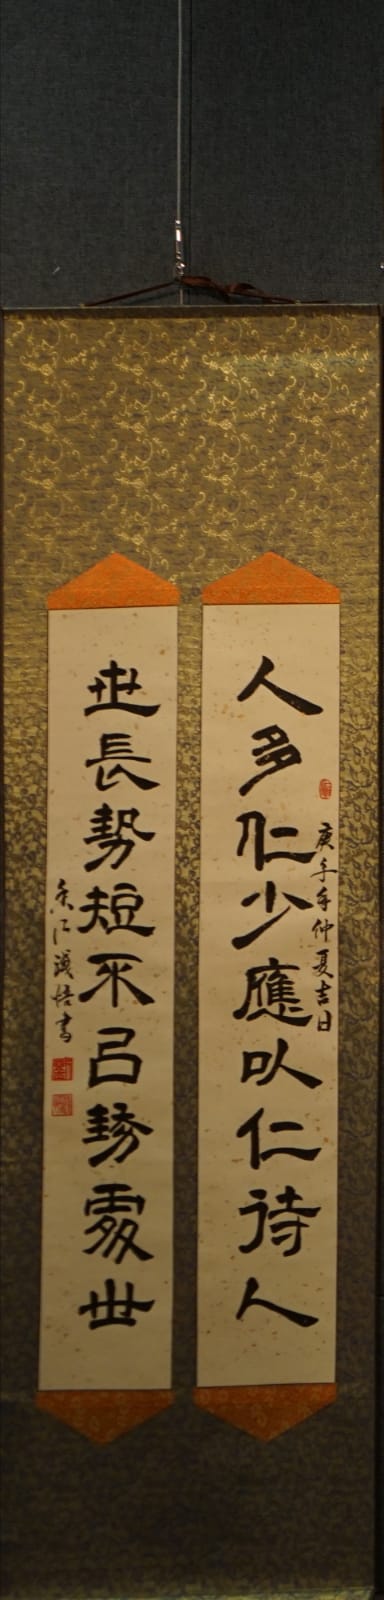 庚子年仲夏吉日
人多仁少應以仁待人
世長勢短不㠯勢處世
香江書